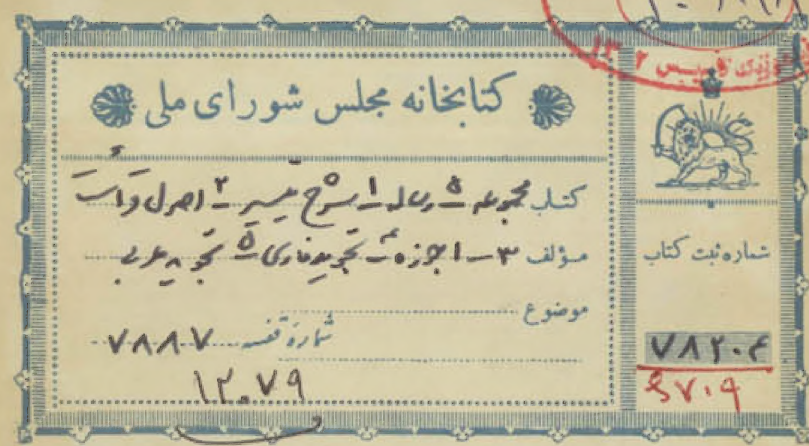 کتابخانه مجلس شورای ملی
کتاب مجموعه ۵ رساله ۱ـ شرح تیسیر ۲ـ اصول قرائت
مؤلف ۳ـ ارجوزه ۴ـ تجوید فارسی ۵ـ تجوید عربی
موضوع
شماره قفسه ۷۸۸۷
۱۲۰۷۹
شماره ثبت کتاب
۷۸۲۰۴
۶۷۰۹